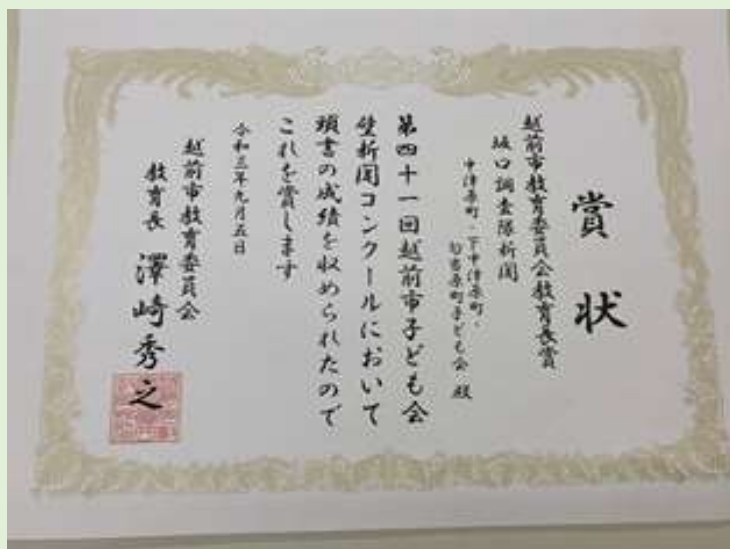 賞状
越前市教育委員会教育長賞
坂口調査隊新聞
中津原町・下中津原町・
勾当原町子ども会 殿
第四十一回越前市子ども会
壁新聞コンクールにおいて
頭書の成績を収められたので
これを賞します
令和三年九月五日
越前市教育委員会
教育長 澤崎秀之